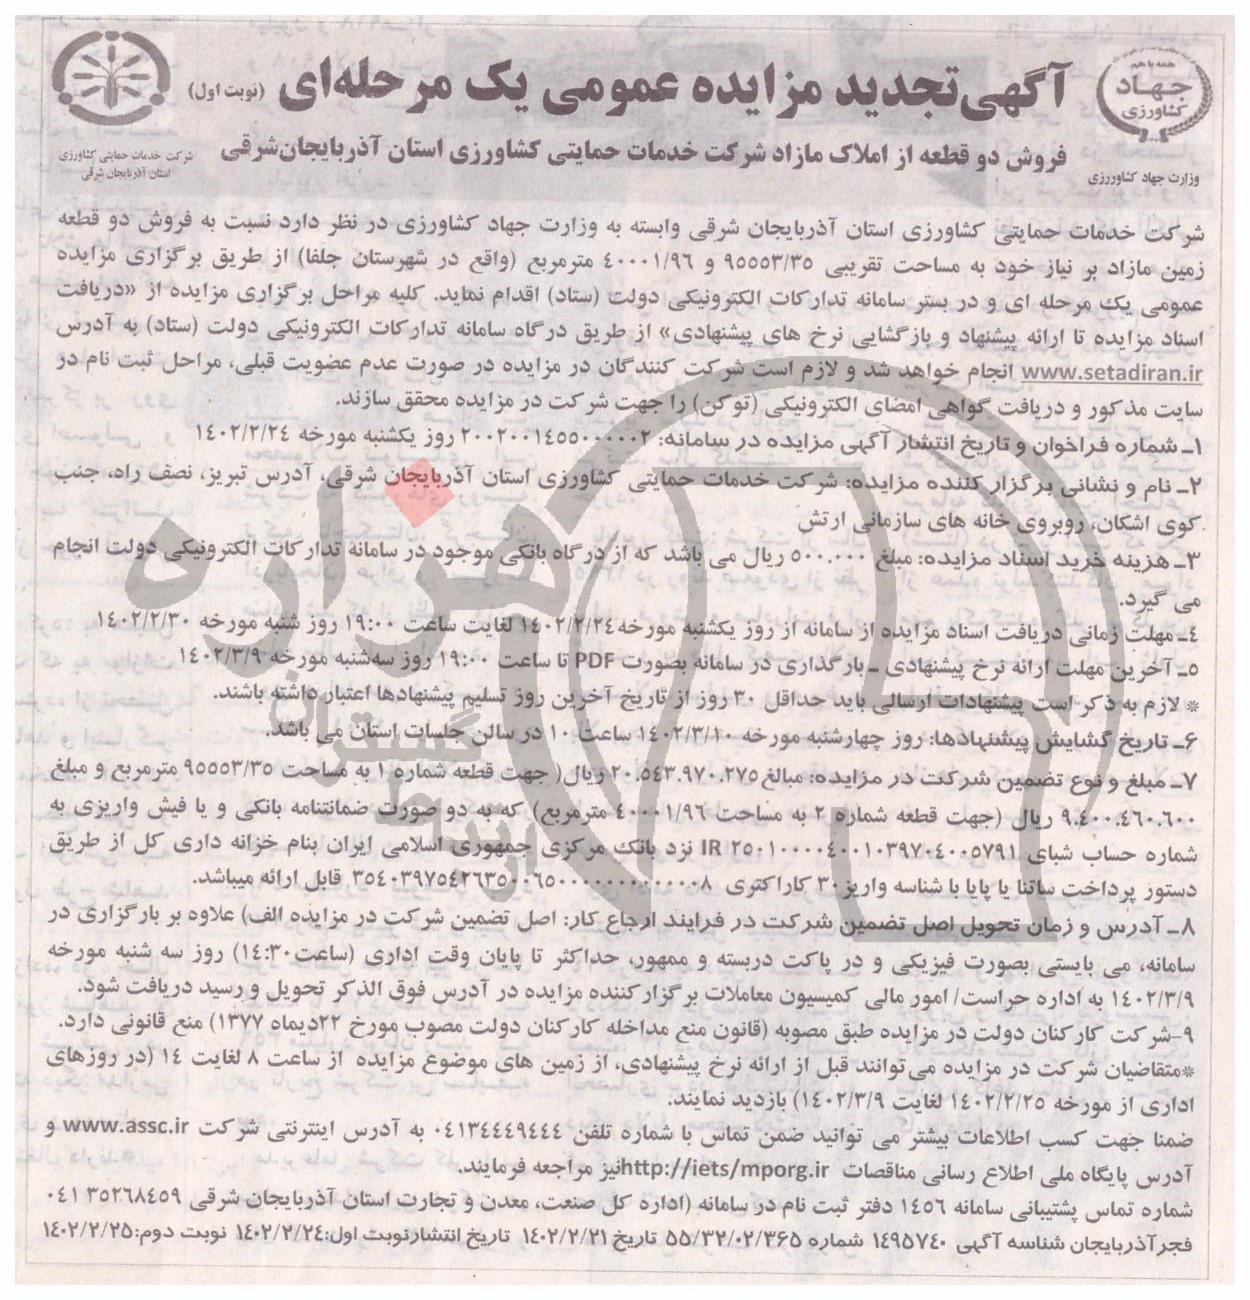 همه با هم
جهاد
کشاورزی
وزارت جهاد کشاورزی
آگهی تجدید مزایده عمومی یک مرحله‌ای (نوبت اول)
فروش دو قطعه از املاک مازاد شرکت خدمات حمایتی کشاورزی استان آذربایجان‌شرقی
شرکت خدمات حمایتی کشاورزی
استان آذربایجان شرقی
شرکت خدمات حمایتی کشاورزی استان آذربایجان شرقی وابسته به وزارت جهاد کشاورزی در نظر دارد نسبت به فروش دو قطعه
زمین مازاد بر نیاز خود به مساحت تقریبی ۹۵۵۵۳/۳۵ و ۴۰۰۰۱/۹۶ مترمربع (واقع در شهرستان جلفا) از طریق برگزاری مزایده
عمومی یک مرحله ای و در بستر سامانه تدارکات الکترونیکی دولت (ستاد) اقدام نماید. کلیه مراحل برگزاری مزایده از «دریافت
اسناد مزایده تا ارائه پیشنهاد و بازگشایی نرخ های پیشنهادی» از طریق درگاه سامانه تدارکات الکترونیکی دولت (ستاد) به آدرس
www.setadiran.ir انجام خواهد شد و لازم است شرکت کنندگان در مزایده در صورت عدم عضویت قبلی، مراحل ثبت نام در
سایت مذکور و دریافت گواهی امضای الکترونیکی (توکن) را جهت شرکت در مزایده محقق سازند.
۱ـ شماره فراخوان و تاریخ انتشار آگهی مزایده در سامانه: ۲۰۰۲۰۰۱۴۵۵۰۰۰۰۰۲ روز یکشنبه مورخه ۱۴۰۲/۲/۲۴
۲ـ نام و نشانی برگزار کننده مزایده: شرکت خدمات حمایتی کشاورزی استان آذربایجان شرقی، آدرس تبریز، نصف راه، جنب
کوی اشکان، روبروی خانه های سازمانی ارتش
۳ـ هزینه خرید اسناد مزایده: مبلغ ۵۰۰.۰۰۰ ریال می باشد که از درگاه بانکی موجود در سامانه تدارکات الکترونیکی دولت انجام
می گیرد.
۴ـ مهلت زمانی دریافت اسناد مزایده از سامانه از روز یکشنبه مورخه ۱۴۰۲/۲/۲۴ لغایت ساعت ۱۹:۰۰ روز شنبه مورخه ۱۴۰۲/۲/۳۰
۵ـ آخرین مهلت ارائه نرخ پیشنهادی ـ بارگذاری در سامانه بصورت PDF تا ساعت ۱۹:۰۰ روز سه‌شنبه مورخه ۱۴۰۲/۳/۹
* لازم به ذکر است پیشنهادات ارسالی باید حداقل ۳۰ روز از تاریخ آخرین روز تسلیم پیشنهادها اعتبار داشته باشند.
۶ـ تاریخ گشایش پیشنهادها: روز چهارشنبه مورخه ۱۴۰۲/۳/۱۰ ساعت ۱۰ در سالن جلسات استان می باشد.
۷ـ مبلغ و نوع تضمین شرکت در مزایده: مبالغ ۲۰.۵۴۳.۹۷۰.۲۷۵ ریال( جهت قطعه شماره ۱ به مساحت ۹۵۵۵۳/۳۵ مترمربع و مبلغ
۹.۴۰۰.۴۶۰.۶۰۰ ریال (جهت قطعه شماره ۲ به مساحت ۴۰۰۰۱/۹۶ مترمربع) که به دو صورت ضمانتنامه بانکی و یا فیش واریزی به
شماره حساب شبای IR ۲۵۰۱۰۰۰۰۴۰۰۱۰۳۹۷۰۴۰۰۵۷۹۱ نزد بانک مرکزی جمهوری اسلامی ایران بنام خزانه داری کل از طریق
دستور پرداخت ساتنا یا پایا با شناسه واریز ۳۰ کاراکتری ۳۵۴۰۳۹۷۵۴۲۶۳۵۰۰۶۵۰۰۰۰۰۰۰۰۰۰۰۰۸ قابل ارائه میباشد.
۸ـ آدرس و زمان تحویل اصل تضمین شرکت در فرایند ارجاع کار: اصل تضمین شرکت در مزایده الف) علاوه بر بارگزاری در
سامانه، می بایستی بصورت فیزیکی و در پاکت دربسته و ممهور، حداکثر تا پایان وقت اداری (ساعت ۱۴:۳۰) روز سه شنبه مورخه
۱۴۰۲/۳/۹ به اداره حراست/ امور مالی کمیسیون معاملات برگزار کننده مزایده در آدرس فوق الذکر تحویل و رسید دریافت شود.
۹-شرکت کارکنان دولت در مزایده طبق مصوبه (قانون منع مداخله کارکنان دولت مصوب مورخ ۲۲دیماه ۱۳۷۷) منع قانونی دارد.
*متقاضیان شرکت در مزایده می‌توانند قبل از ارائه نرخ پیشنهادی، از زمین های موضوع مزایده از ساعت ۸ لغایت ۱۴ (در روزهای
اداری از مورخه ۱۴۰۲/۲/۲۵ لغایت ۱۴۰۲/۳/۹) بازدید نمایند.
ضمنا جهت کسب اطلاعات بیشتر می توانید ضمن تماس با شماره تلفن ۰۴۱۳۴۴۴۹۴۴۴ به آدرس اینترنتی شرکت www.assc.ir و
آدرس پایگاه ملی اطلاع رسانی مناقصات http://iets/mporg.ir نیز مراجعه فرمایند.
شماره تماس پشتیبانی سامانه ۱۴۵۶ دفتر ثبت نام در سامانه (اداره کل صنعت، معدن و تجارت استان آذربایجان شرقی ۳۵۲۶۸۴۵۹ ۰۴۱
فجرآذربایجان شناسه آگهی ۱۴۹۵۷۴۰ شماره ۵۵/۳۲/۰۲/۳۶۵ تاریخ ۱۴۰۲/۲/۲۱ تاریخ انتشارنوبت اول:۱۴۰۲/۲/۲۴ نوبت دوم:۱۴۰۲/۲/۲۵
هزاره